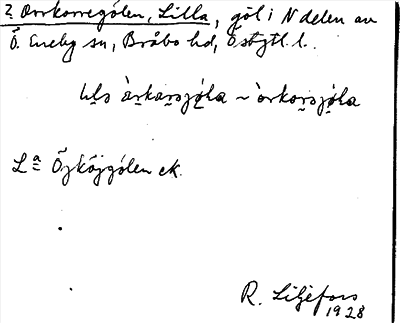 2. Orrkorregölen, Lilla, göl i N delen av
Ö. Eneby sn, Bråbo hd, Östgtl. l.
lịls àrkarsjöla ~ òrkorsjöla
La Özköjgölen ek.
R. Liljefors
1928